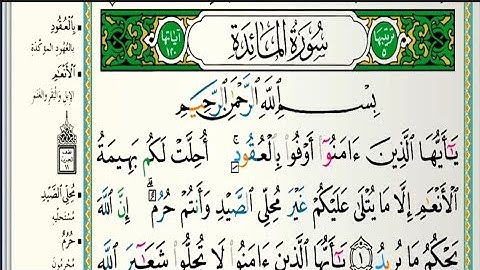 ترتيبها ٥
سُورَةُ المَائِدَةِ
آياتها ١٢٠
بِسْمِ اللَّهِ الرَّحْمَٰنِ الرَّحِيمِ
يَٰٓأَيُّهَا ٱلَّذِينَ ءَامَنُوٓا۟ أَوْفُوا۟ بِٱلْعُقُودِ ۚ أُحِلَّتْ لَكُم بَهِيمَةُ
ٱلْأَنْعَٰمِ إِلَّا مَا يُتْلَىٰ عَلَيْكُمْ غَيْرَ مُحِلِّى ٱلصَّيْدِ وَأَنتُمْ حُرُمٌ ۗ إِنَّ ٱللَّهَ
يَحْكُمُ مَا يُرِيدُ ١ يَٰٓأَيُّهَا ٱلَّذِينَ ءَامَنُوا۟ لَا تُحِلُّوا۟ شَعَٰٓئِرَ ٱللَّهِ
بِالْعُقُودِ
بالعهود المؤكدة
الْأَنْعَٰمِ
الإبل والبقر والغنم
مُحِلِّى الصَّيْدِ
مستحليه
حُرُمٌ
محرمون